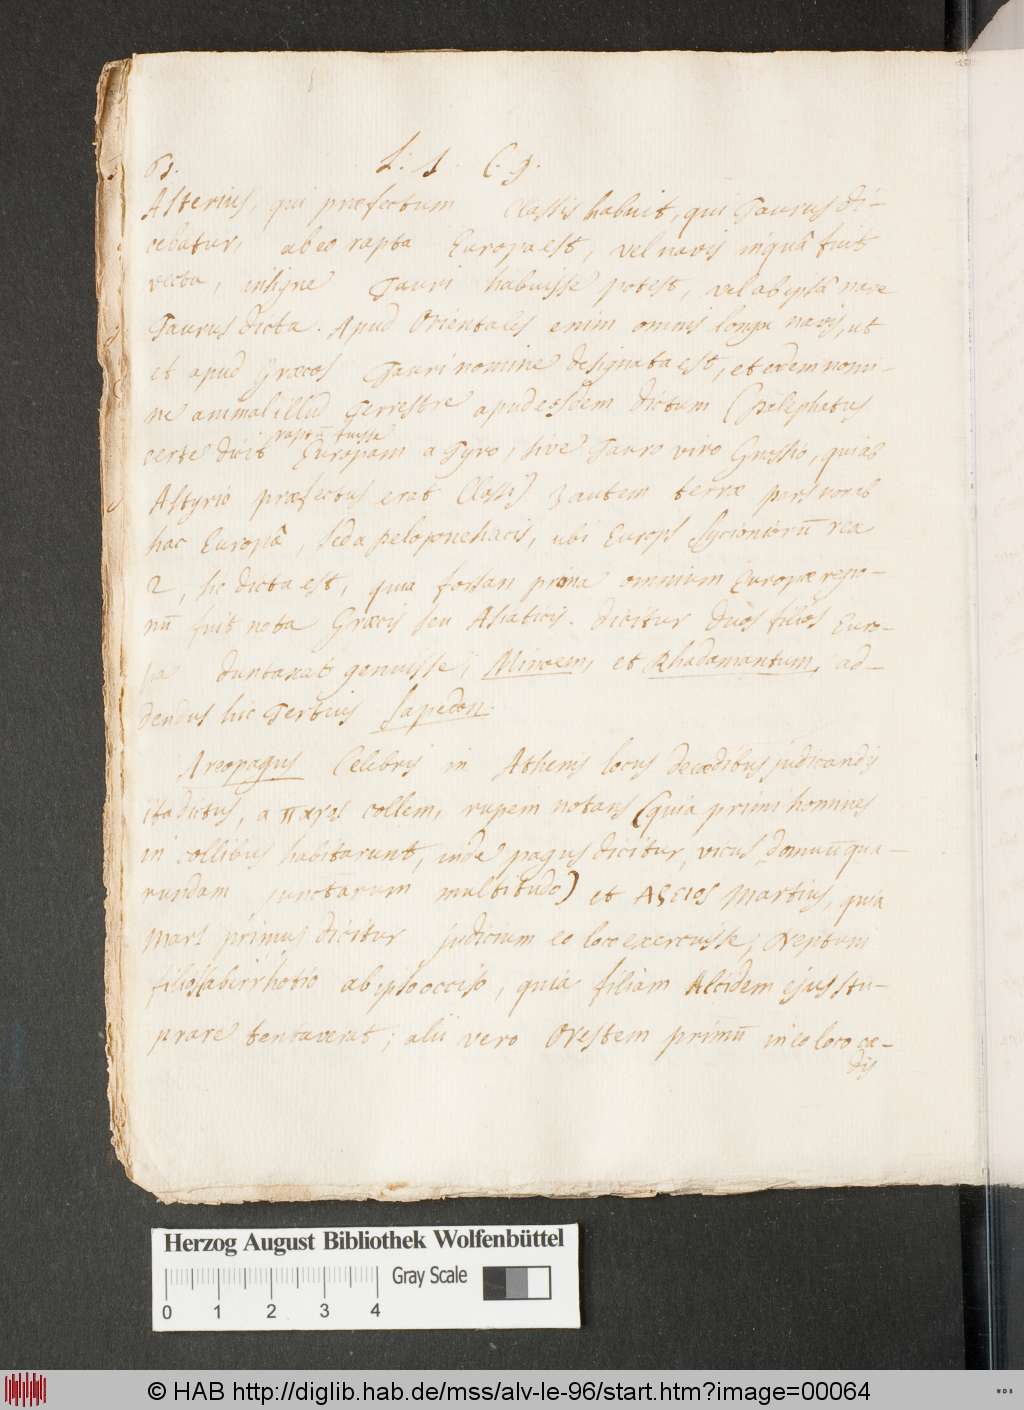 61. L. 1. C. 9.
Asterius, qui præfectum Classis habuit, qui Taurus di-
cebatur, ab eo rapta Europa est, vel navis in quâ fuit
vecta, insigne Tauri habuisse potest, vel ab ipsâ nave
Taurus dicta. Apud Orientales enim omnis longa navis, ut
et apud Græcos Tauri nomine designata est, et eodem nomi-
ne animal illud Terrestre apud eosdem dictum (Palephatus
certe dicit raptū fuisse Europam a Tyro, sive Tauro viro Gnossio, qui ab
Astyrio præfectus erat Classi) 3 autem terræ pars non ab
hac Europâ, sed a peloponesiacis, ubi Europs Sycioniorū rex
2, sic dicta est, quia forsan prima omnium Europæ regio-
nū fuit nota Græcis seu Asiaticis. Dicitur duos filios Euro-
pa duntaxat genuisse, Minoem, et Rhadamantum, ad-
dendus huc Tertius Sapedon.
Areopagus Celebris in Athenis locus de cædibus judicandis
ita dictus, a παγος collem, rupem notans (quia primi homines
in collibus habitarunt, inde pagus dicitur, vicus, domuū qua-
rundam junctarum multitudo) et Αρειος Martius, quia
Mars primus dicitur judicium eo loco exercuisse, Neptuni
filio Halirrhotio ab ipso occiso, quia filiam Alcidem ejus stu-
prare tentaverat; alii vero Orestem primū in eo loco cæ-
dis
Herzog August Bibliothek Wolfenbüttel
0 1 2 3 4 Gray Scale
© HAB http://diglib.hab.de/mss/alv-le-96/start.htm?image=00064